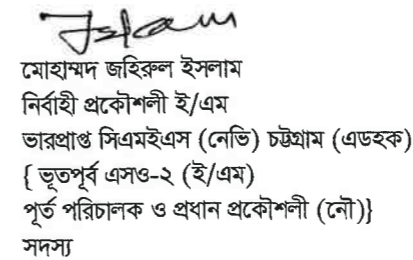 Islam
মোহাম্মদ জহিরুল ইসলাম
নির্বাহী প্রকৌশলী ই/এম
ভারপ্রাপ্ত সিএমইএস (নেভি) চট্টগ্রাম (এডহক)
{ ভূতপূর্ব এসও-২ (ই/এম)
পূর্ত পরিচালক ও প্রধান প্রকৌশলী (নৌ)}
সদস্য